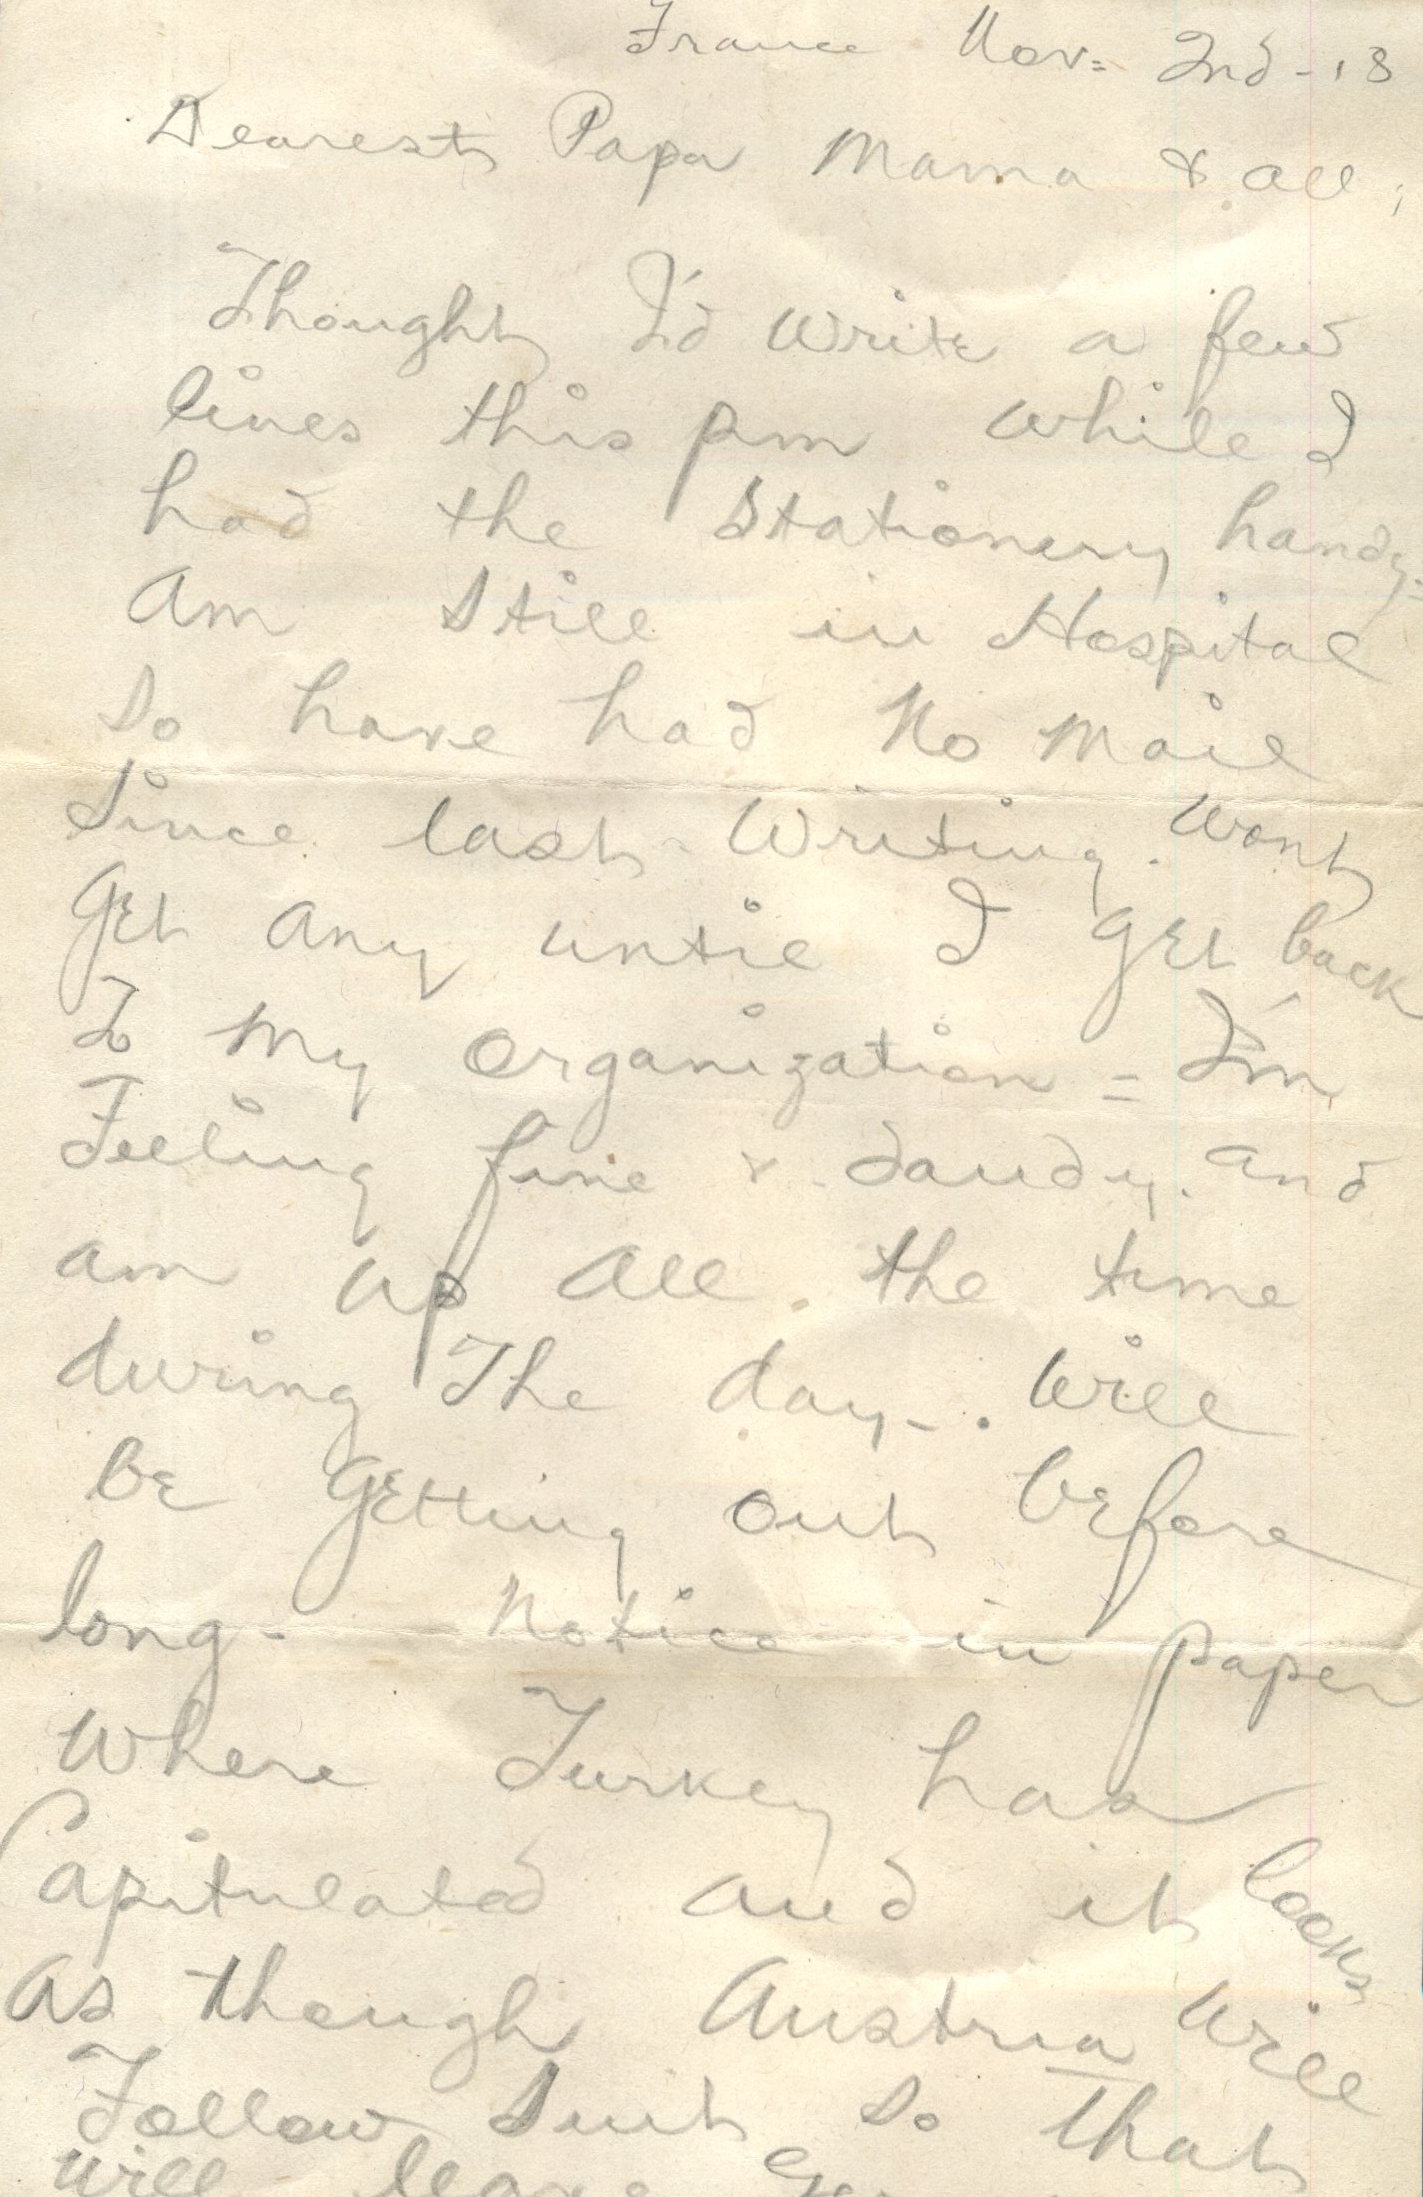 France Nov= 2nd-18
Dearest Papa Mama & all,
Thought I'd write a few
lines this pm while I
had the Stationery handy=
Am Still in Hospital
So have had No Mail
Since last Writing. Wont
Get any until I get back
To My Organization = I'm
Feeling fine & dandy. and
am up all the time
during The day-. Will
be Getting out before
long- Notice in paper
Where Turkey has
Capitulated and it looks
As though Austria Will
Follow Suit So that
will leave